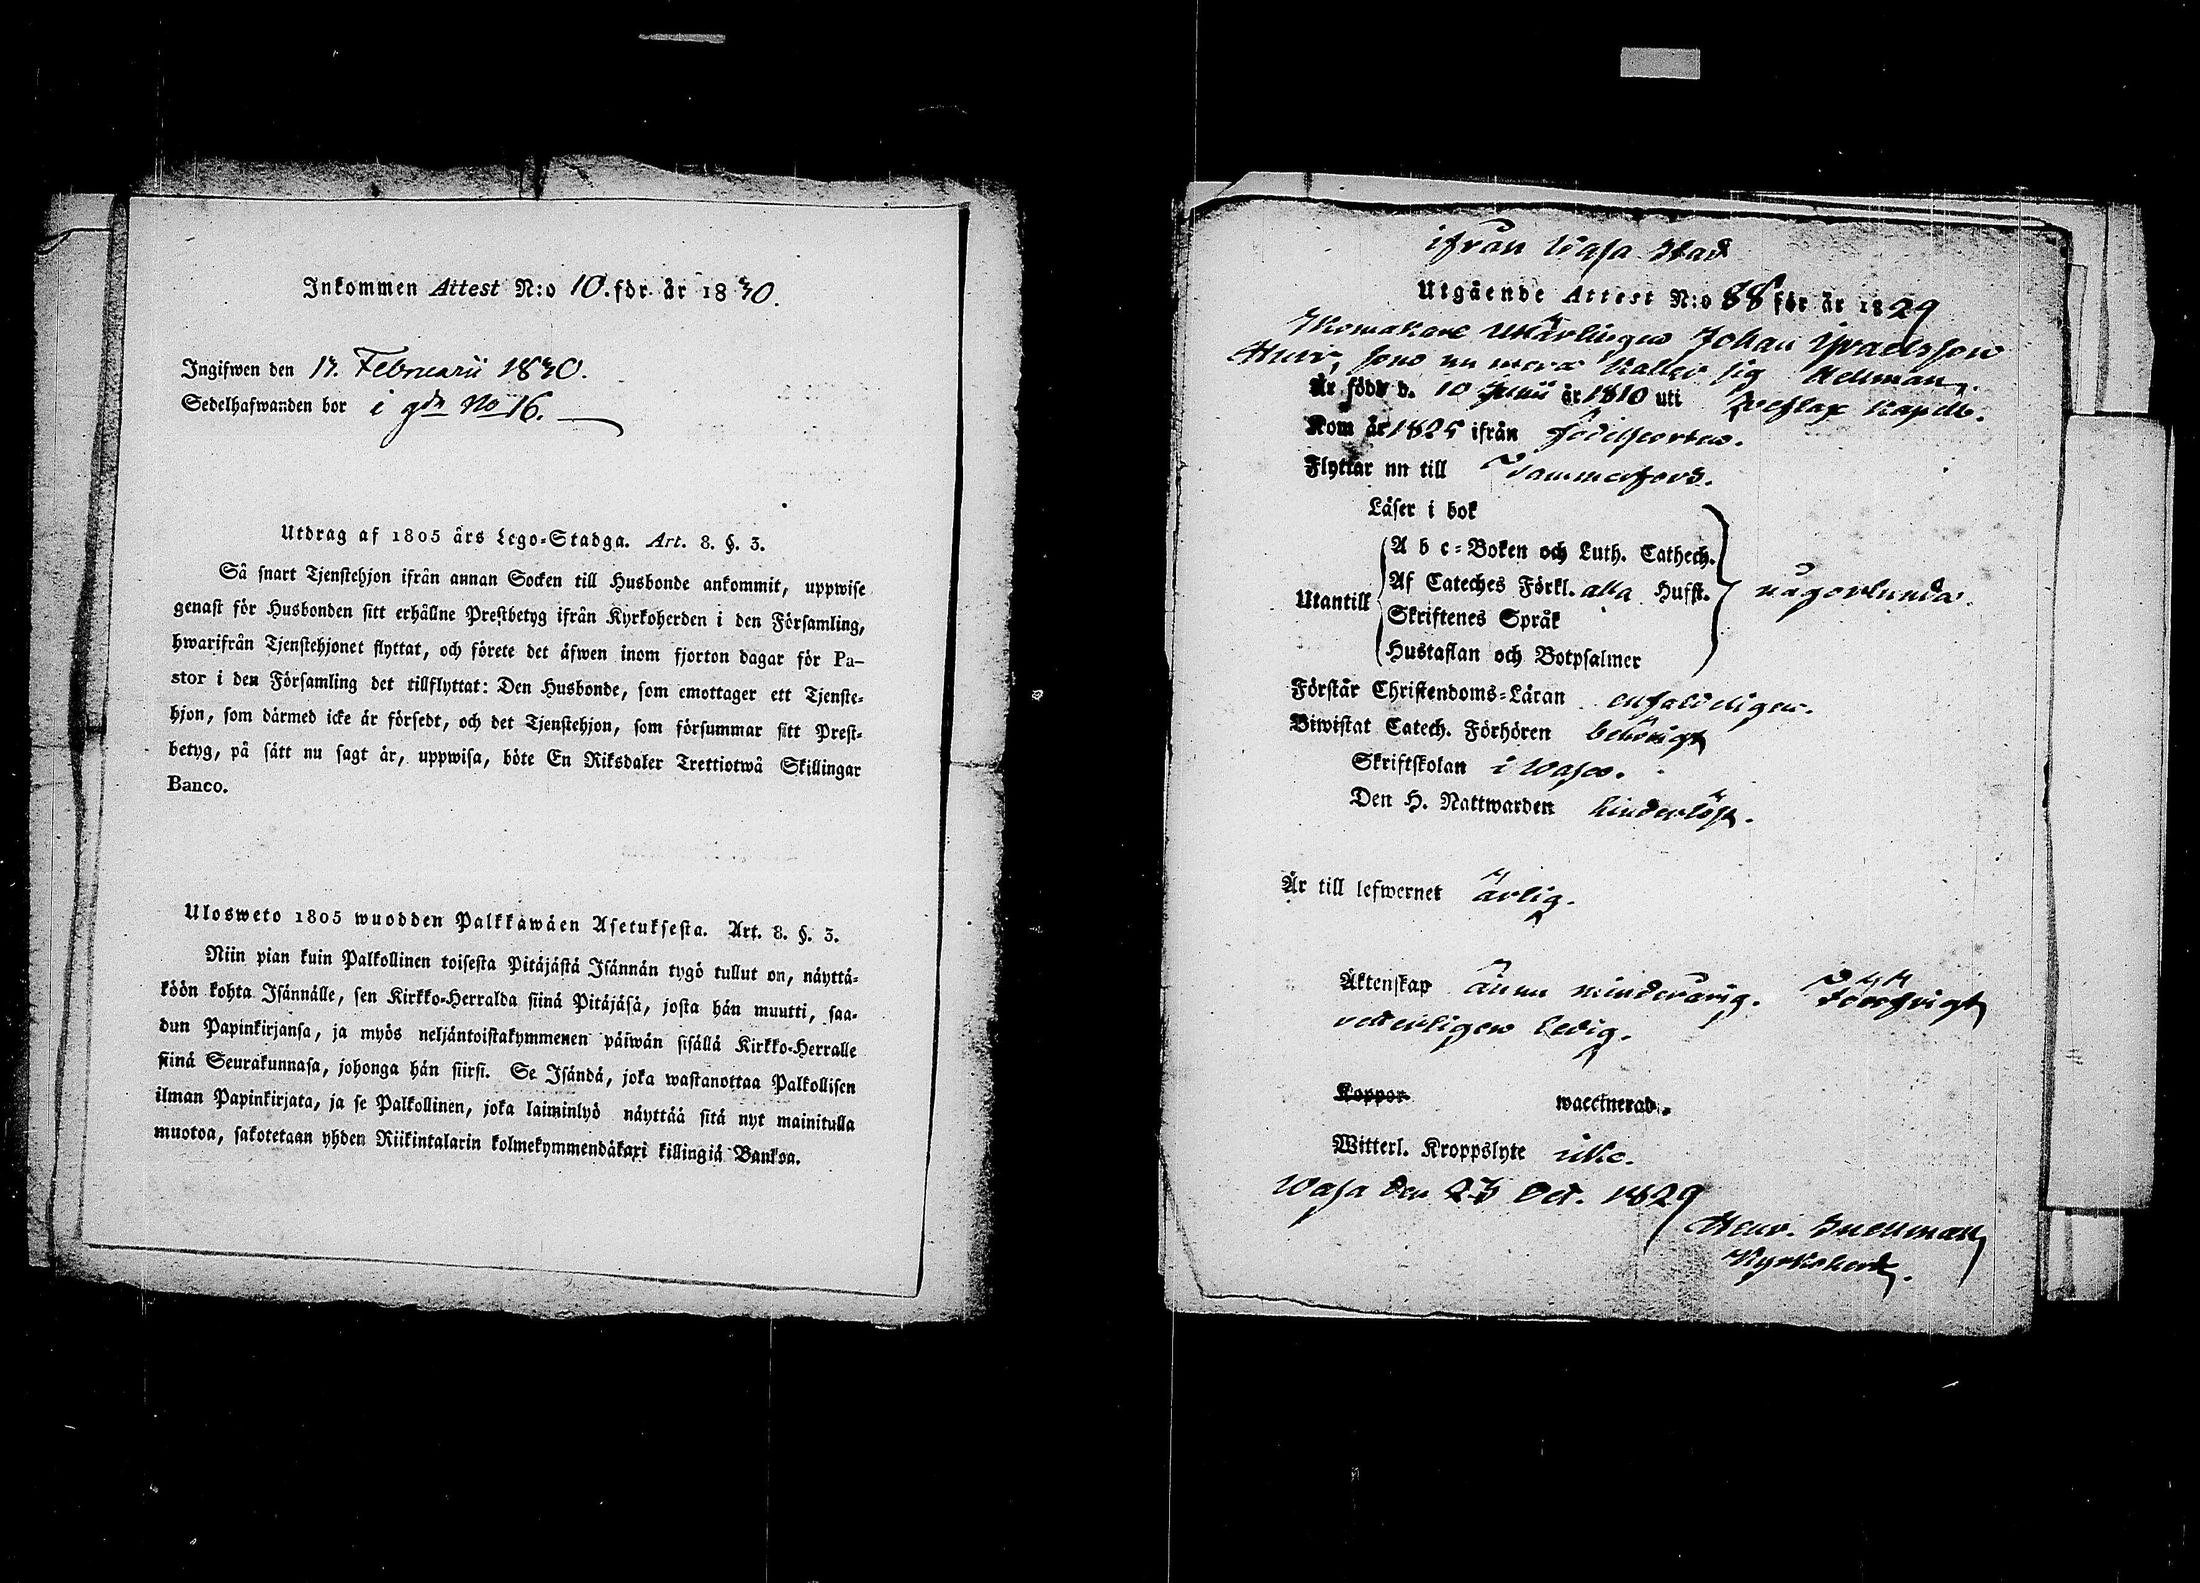 Inkommen Attest N:o 10. för år 1830.
Ingifwen den 17. Februarii 1830.
Sedelhafwanden bor i gdn No 16.
Utdrag af 1805 års Lego-Stadga. Art. 8. §. 3.
Så snart Tjenstehjon ifrån annan Socken till Husbonde ankommit, uppwise
genast för Husbonden sitt erhållne Prestbetyg ifrån Kyrkoherden i den Församling,
hwarifrån Tjenstehjonet flyttat, och förete det åfwen inom fjorton dagar för Pa-
stor i den Församling det tillflyttat: Den Husbonde, som emottager ett Tjenste-
hjon, som dårmed icke år försedt, och det Tjenstehjon, som försummar sitt Prest-
betyg, på sått nu sagt år, uppwisa, böte En Riksdaler Trettiotwå Skillingar
Banco.
Ulosweto 1805 wuodden Palkkawåen Asetuksesta. Art. 8. §. 3.
Niin pian kuin Palkollinen toisesta Pitåjåstå Isånnån tygö tullut on, nåyttå-
köön kohta Isånnålle, sen Kirkko-Herralda siinå Pitåjåså, josta hån muutti, saa-
dun Papinkirjansa, ja myös neljåntoistakymmenen påiwån sisållå Kirkko-Herralle
siinå Seurakunnasa, johonga hån siirsi. Se Isåndå, joka wastanottaa Palkollisen
ilman Papinkirjata, ja se Palkollinen, joka laiminlyö nåyttåå sitå nyt mainitulla
muotoa, sakotetaan yhden Riikintalarin kolmekymmendåkaxi killingiå Bankoa.
ifrån Wasa Stad
Utgående Attest N:o 88 för år 1829
Skomakare Lärlingen Johan
som nu mera kallar sig Hellman,
Är född d. 10 Junii år 1810 uti Kapell.
Kom år 1825 ifrån födelseorten.
Flyttar nu till Tammerfors.
Läser i bok
A b c-Boken och Luth. Cathech.
Af Cateches Förkl. alla Hufst. någorlunda.
Utantill
Skriftenes Språk
Hustaflan och Botpsalmer
Förstår Christendoms-Läran enfaldeligen.
Biwistat Catech. Förhören behörigt
Skriftskolan i Wasa.
Den H. Nattwarden hinderlöst.
Är till lefwernet ärlig.
Äktenskap ännu minderårig.
ledig.
Koppor waccinerad.
Witterl. Kroppslyte icke.
Wasa den 23 Oct. 1829
Henr. Snellman
Kyrkoherde.